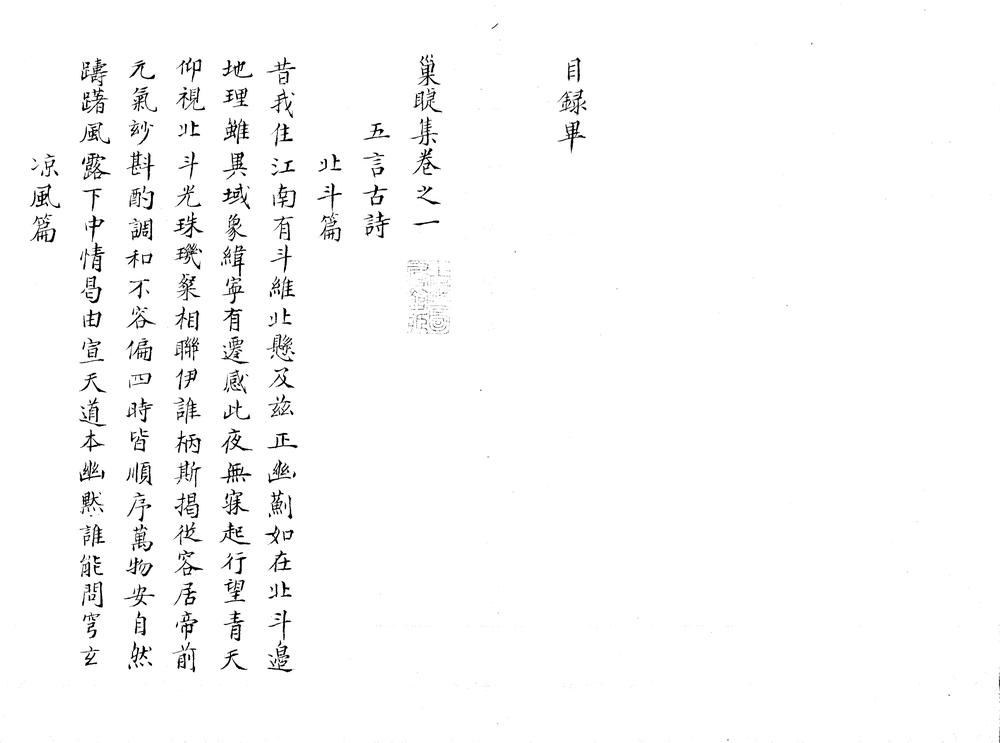 目録畢
巢睫集卷之一
五言古詩
北斗篇
昔我住江南有斗維北懸及兹正幽薊如在北斗邉
地理雖異域象緯寧有遷感此夜無寐起行望青天
仰視北斗光珠璣粲相聯伊誰柄斯揭從容居帝前
元氣玅斟酌調和不容偏四時皆順序萬物安自然
躊躇風露下中情曷由宣天道本幽黙誰能問穹玄
凉風篇